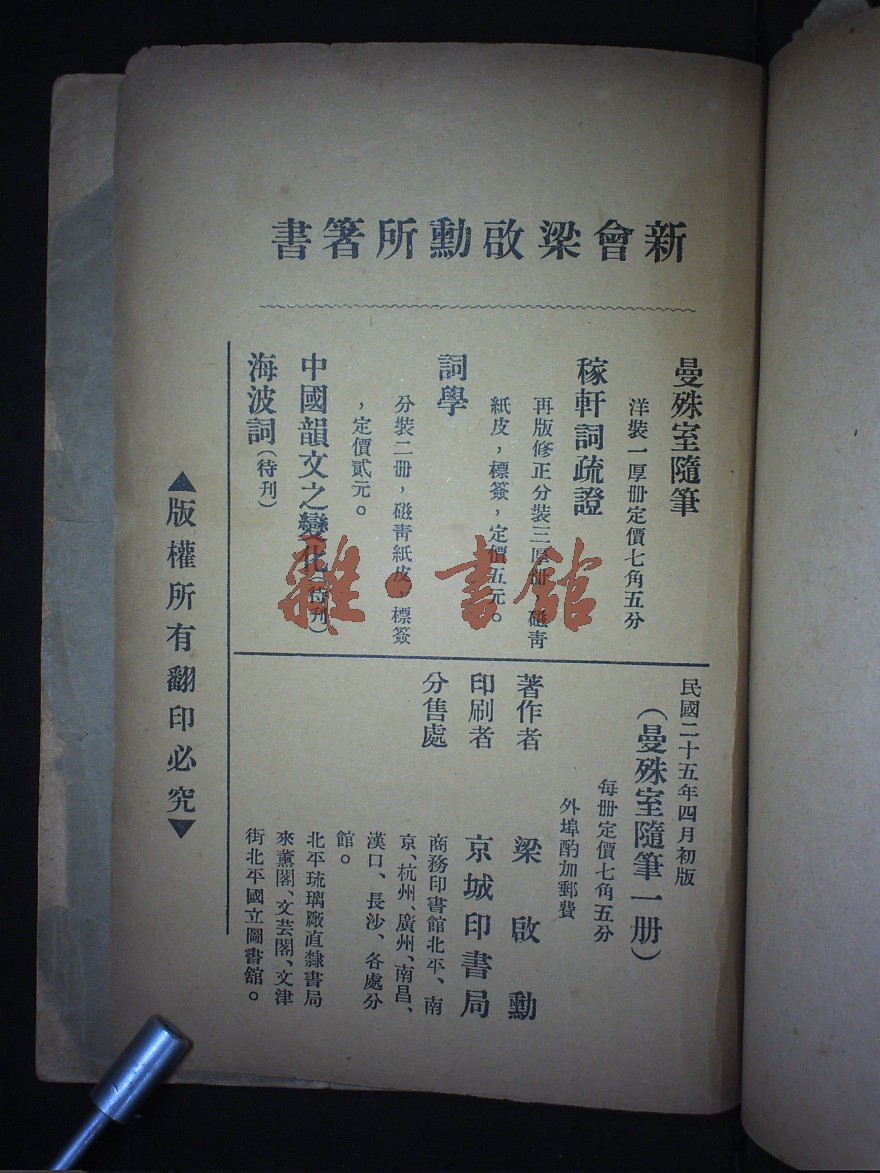 新會梁啟勳所箸書
曼殊室隨筆
洋裝一厚册定價七角五分
稼軒詞疏證
再版修正分裝三厚册，磁靑
紙皮，標簽，定價五元。
詞學
分裝二册，磁靑紙皮，標簽
，定價貳元。
中國韻文之變化（待刊）
海波詞（待刊）
民國二十五年四月初版
（曼殊室隨筆一册）
每册定價七角五分
外埠酌加郵費
著作者　梁啟勳
印刷者　京城印書局
分售處
商務印書館北平、南
京、杭州、廣州、南昌、
漢口、長沙、各處分
館。
北平琉璃廠直隸書局
來薰閣、文芸閣、文津
街北平國立圖書館。
▲版權所有翻印必究▼
雜·書館